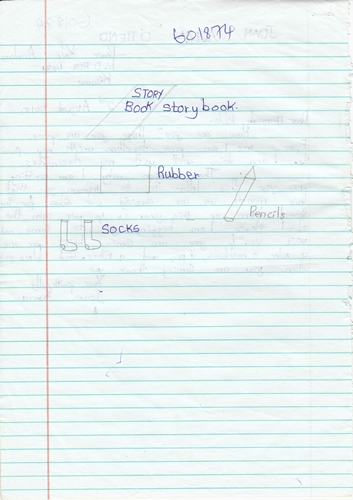 601874
STORY
Book storybook.
Rubber
Pencils
Socks